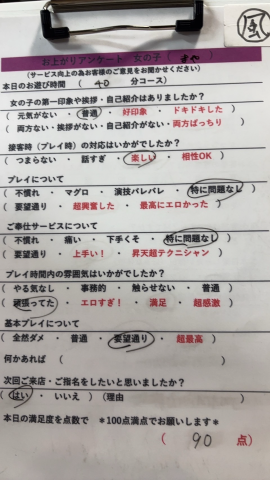 風
お上がりアンケート 女の子( まや )
(サービス向上の為お客様のご意見をお聞かせください)
本日のお遊び時間 ( 40 分コース)
女の子の第一印象や挨拶・自己紹介はありましたか?
( 元気がない ・ 普通 ・ 好印象 ・ ドキドキした )
( 両方ない・挨拶がない・自己紹介がない・両方ばっちり )
接客時(プレイ時)の対応はいかがでしたか?
( つまらない ・ 話すぎ ・ 楽しい ・ 相性OK )
プレイについて
( 不慣れ ・ マグロ ・ 演技バレバレ ・ 特に問題なし )
( 要望通り ・ 超興奮した ・ 最高にエロかった )
ご奉仕サービスについて
( 不慣れ ・ 痛い ・ 下手くそ ・ 特に問題なし )
( 要望通り ・ 上手い! ・ 昇天超テクニシャン )
プレイ時間内の雰囲気はいかがでしたか?
( やる気なし ・ 事務的 ・ 触らせない ・ 普通 )
( 頑張ってた ・ エロすぎ! ・ 満足 ・ 超感激 )
基本プレイについて
( 全然ダメ ・ 普通 ・ 要望通り ・ 超最高 )
何かあれば ( )
次回ご来店・ご指名をしたいと思いましたか?
( はい ・ いいえ ) (理由 )
本日の満足度を点数で *100点満点でお願いします*
( 90 点)